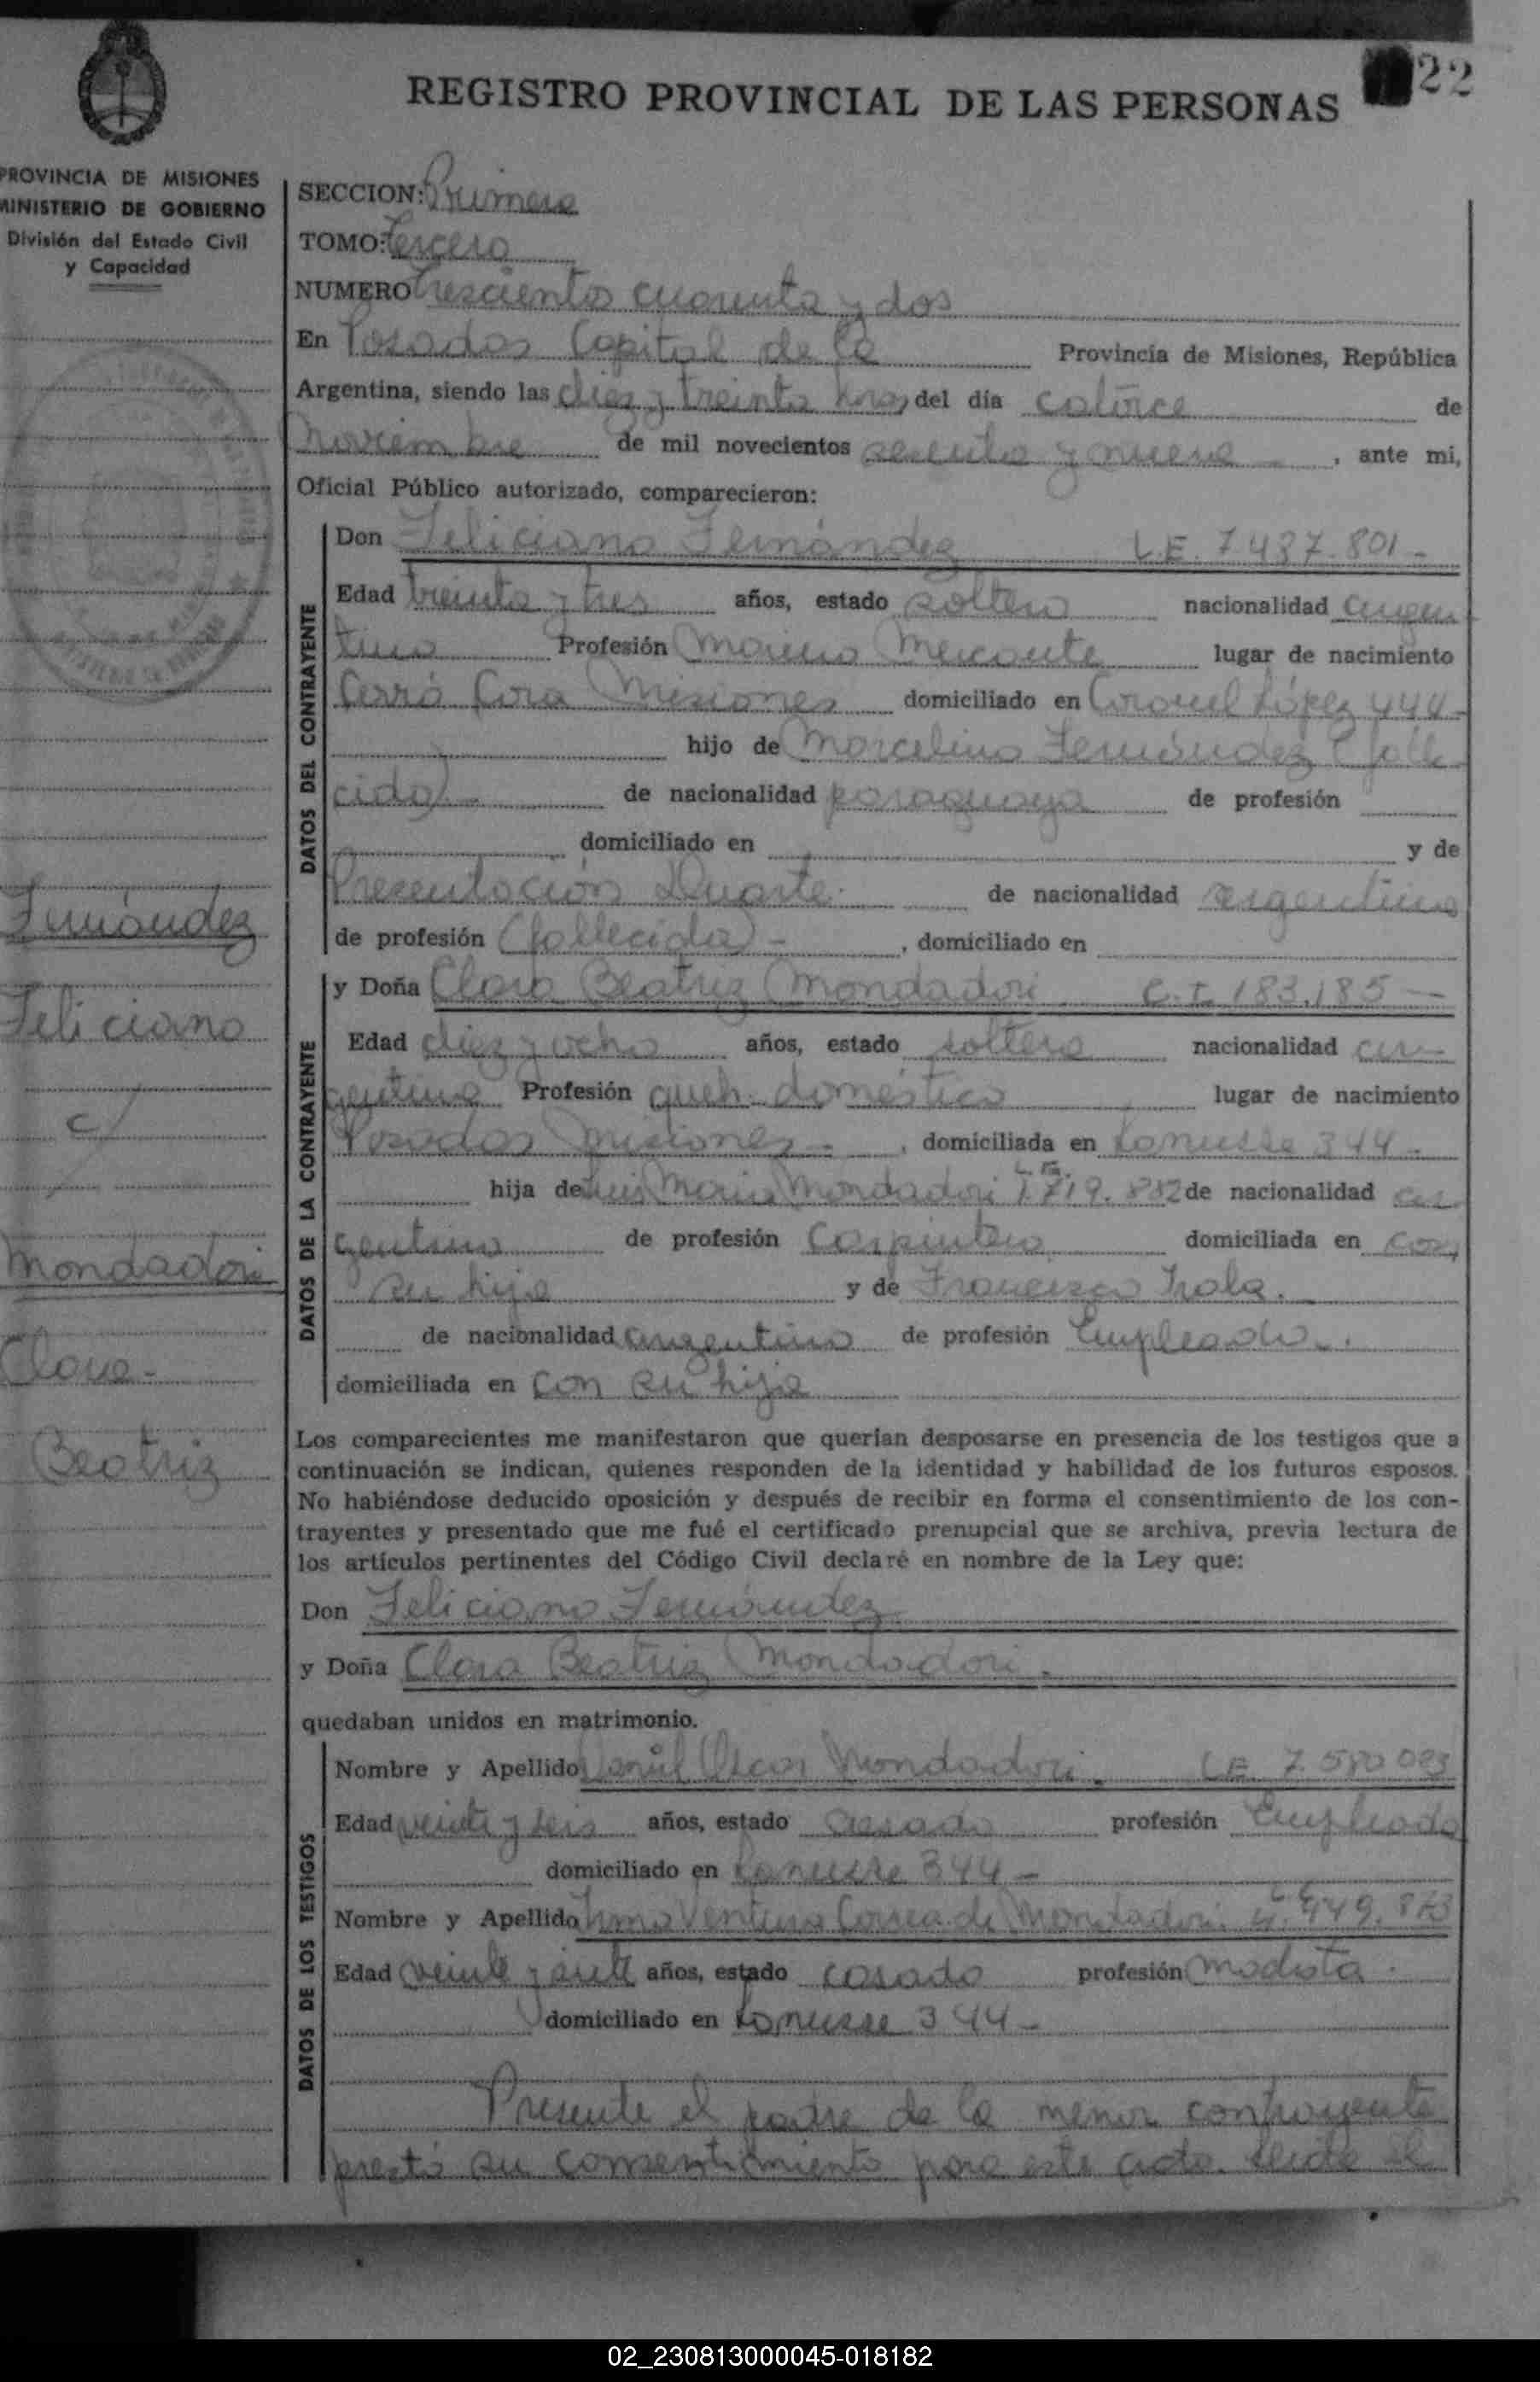 22
REGISTRO PROVINCIAL DE LAS PERSONAS
PROVINCIA DE MISIONES
MINISTERIO DE GOBIERNO
División del Estado Civil
y Capacidad
SECCION: Primera
TOMO: Tercero
NUMERO Trescientos cuarenta y dos
En Posadas Capital de la Provincia de Misiones, República
Argentina, siendo las diez y treinta hras, del día catorce de
Noviembre de mil novecientos sesenta y nueve, ante mi,
Oficial Público autorizado, comparecieron:
DATOS DEL CONTRAYENTE
Don Feliciano Fernández L.E. 7.437.801-
Edad treinta y tres años, estado soltero nacionalidad argen
tino Profesión Marino Mercante lugar de nacimiento
Cerró Cora Misiones domiciliado en Coronel López 444-
hijo de Marcelino Fernández (falle
cido)- de nacionalidad paraguaya de profesión
domiciliado en y de
Presentación Duarte de nacionalidad argentina
de profesión (fallecida)-, domiciliado en
Fernández
Feliciano
c/
Mondadori
Clara-
Beatriz
DATOS DE LA CONTRAYENTE
y Doña Clara Beatriz Mondadori C.I. 183.185-
Edad diez y ocho años, estado soltera nacionalidad ar-
gentina Profesión queh. domésticos lugar de nacimiento
Posadas Misiones-, domiciliada en Lanusse 344-
hija de Luis Maria Mondadori L.E. de nacionalidad ar
gentino de profesión Carpintero domiciliada en con
su hija y de Francisca Irala.
de nacionalidad argentina de profesión Empleada.
domiciliada en con su hija
Los comparecientes me manifestaron que querían desposarse en presencia de los testigos que a
continuación se indican, quienes responden de la identidad y habilidad de los futuros esposos.
No habiéndose deducido oposición y después de recibir en forma el consentimiento de los con-
trayentes y presentado que me fué el certificado prenupcial que se archiva, previa lectura de
los artículos pertinentes del Código Civil declaré en nombre de la Ley que:
Don Feliciano Fernández
y Doña Clara Beatriz Mondadori.
quedaban unidos en matrimonio.
DATOS DE LOS TESTIGOS
Nombre y Apellido Oscar Mondadori. L.E. 7.580.093
Edad veinte y seis años, estado casado profesión Empleado
domiciliado en Lanusse 344-
Nombre y Apellido Ventura Correa de Mondadori L.C.
Edad veinte y siete años, estado casado profesión Modista.
domiciliado en Lanusse 344-
Presente el padre de la menor contrayente
prestó su consentimiento para este acto. Leida el
02_230813000045-018182